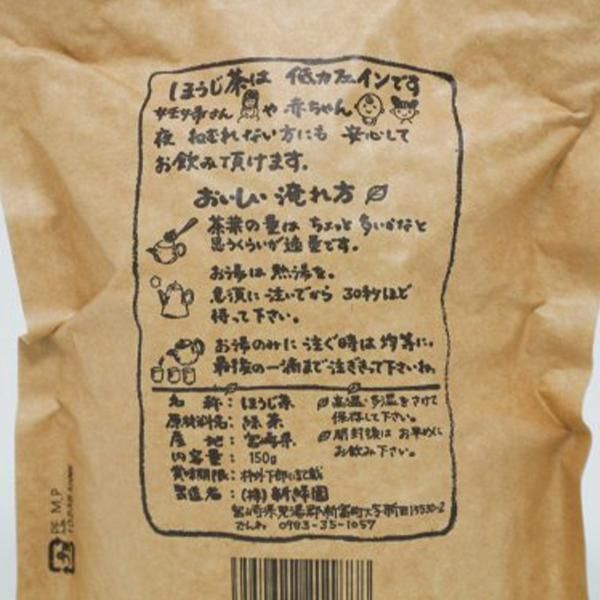 ほうじ茶は 低カフェインです
や 赤ちゃん
夜 ねむれない方にも 安心して
お飲みて頂けます。
おいしい 淹れ方
茶葉の量は ちょっと 多いかなと
思うくらいが適量です。
お湯は 熱湯を。
急須に 注いでから 30秒ほど
待って下さい。
お湯のみに 注ぐ時は 均等に。
最後の一滴まで注ぎきって下さいね。
名 称: ほうじ茶
原材料名: 緑茶
産 地: 宮崎県
内容量: 150g
賞味期限: 枠外下部に記載
製造者: (株)新緑園
宮崎県児湯郡新富町大字新田
でんわ. 0983-35-1057
高温・多湿をさけて
保存して下さい。
開封後は お早めに
お飲み下さい。
PE M,P